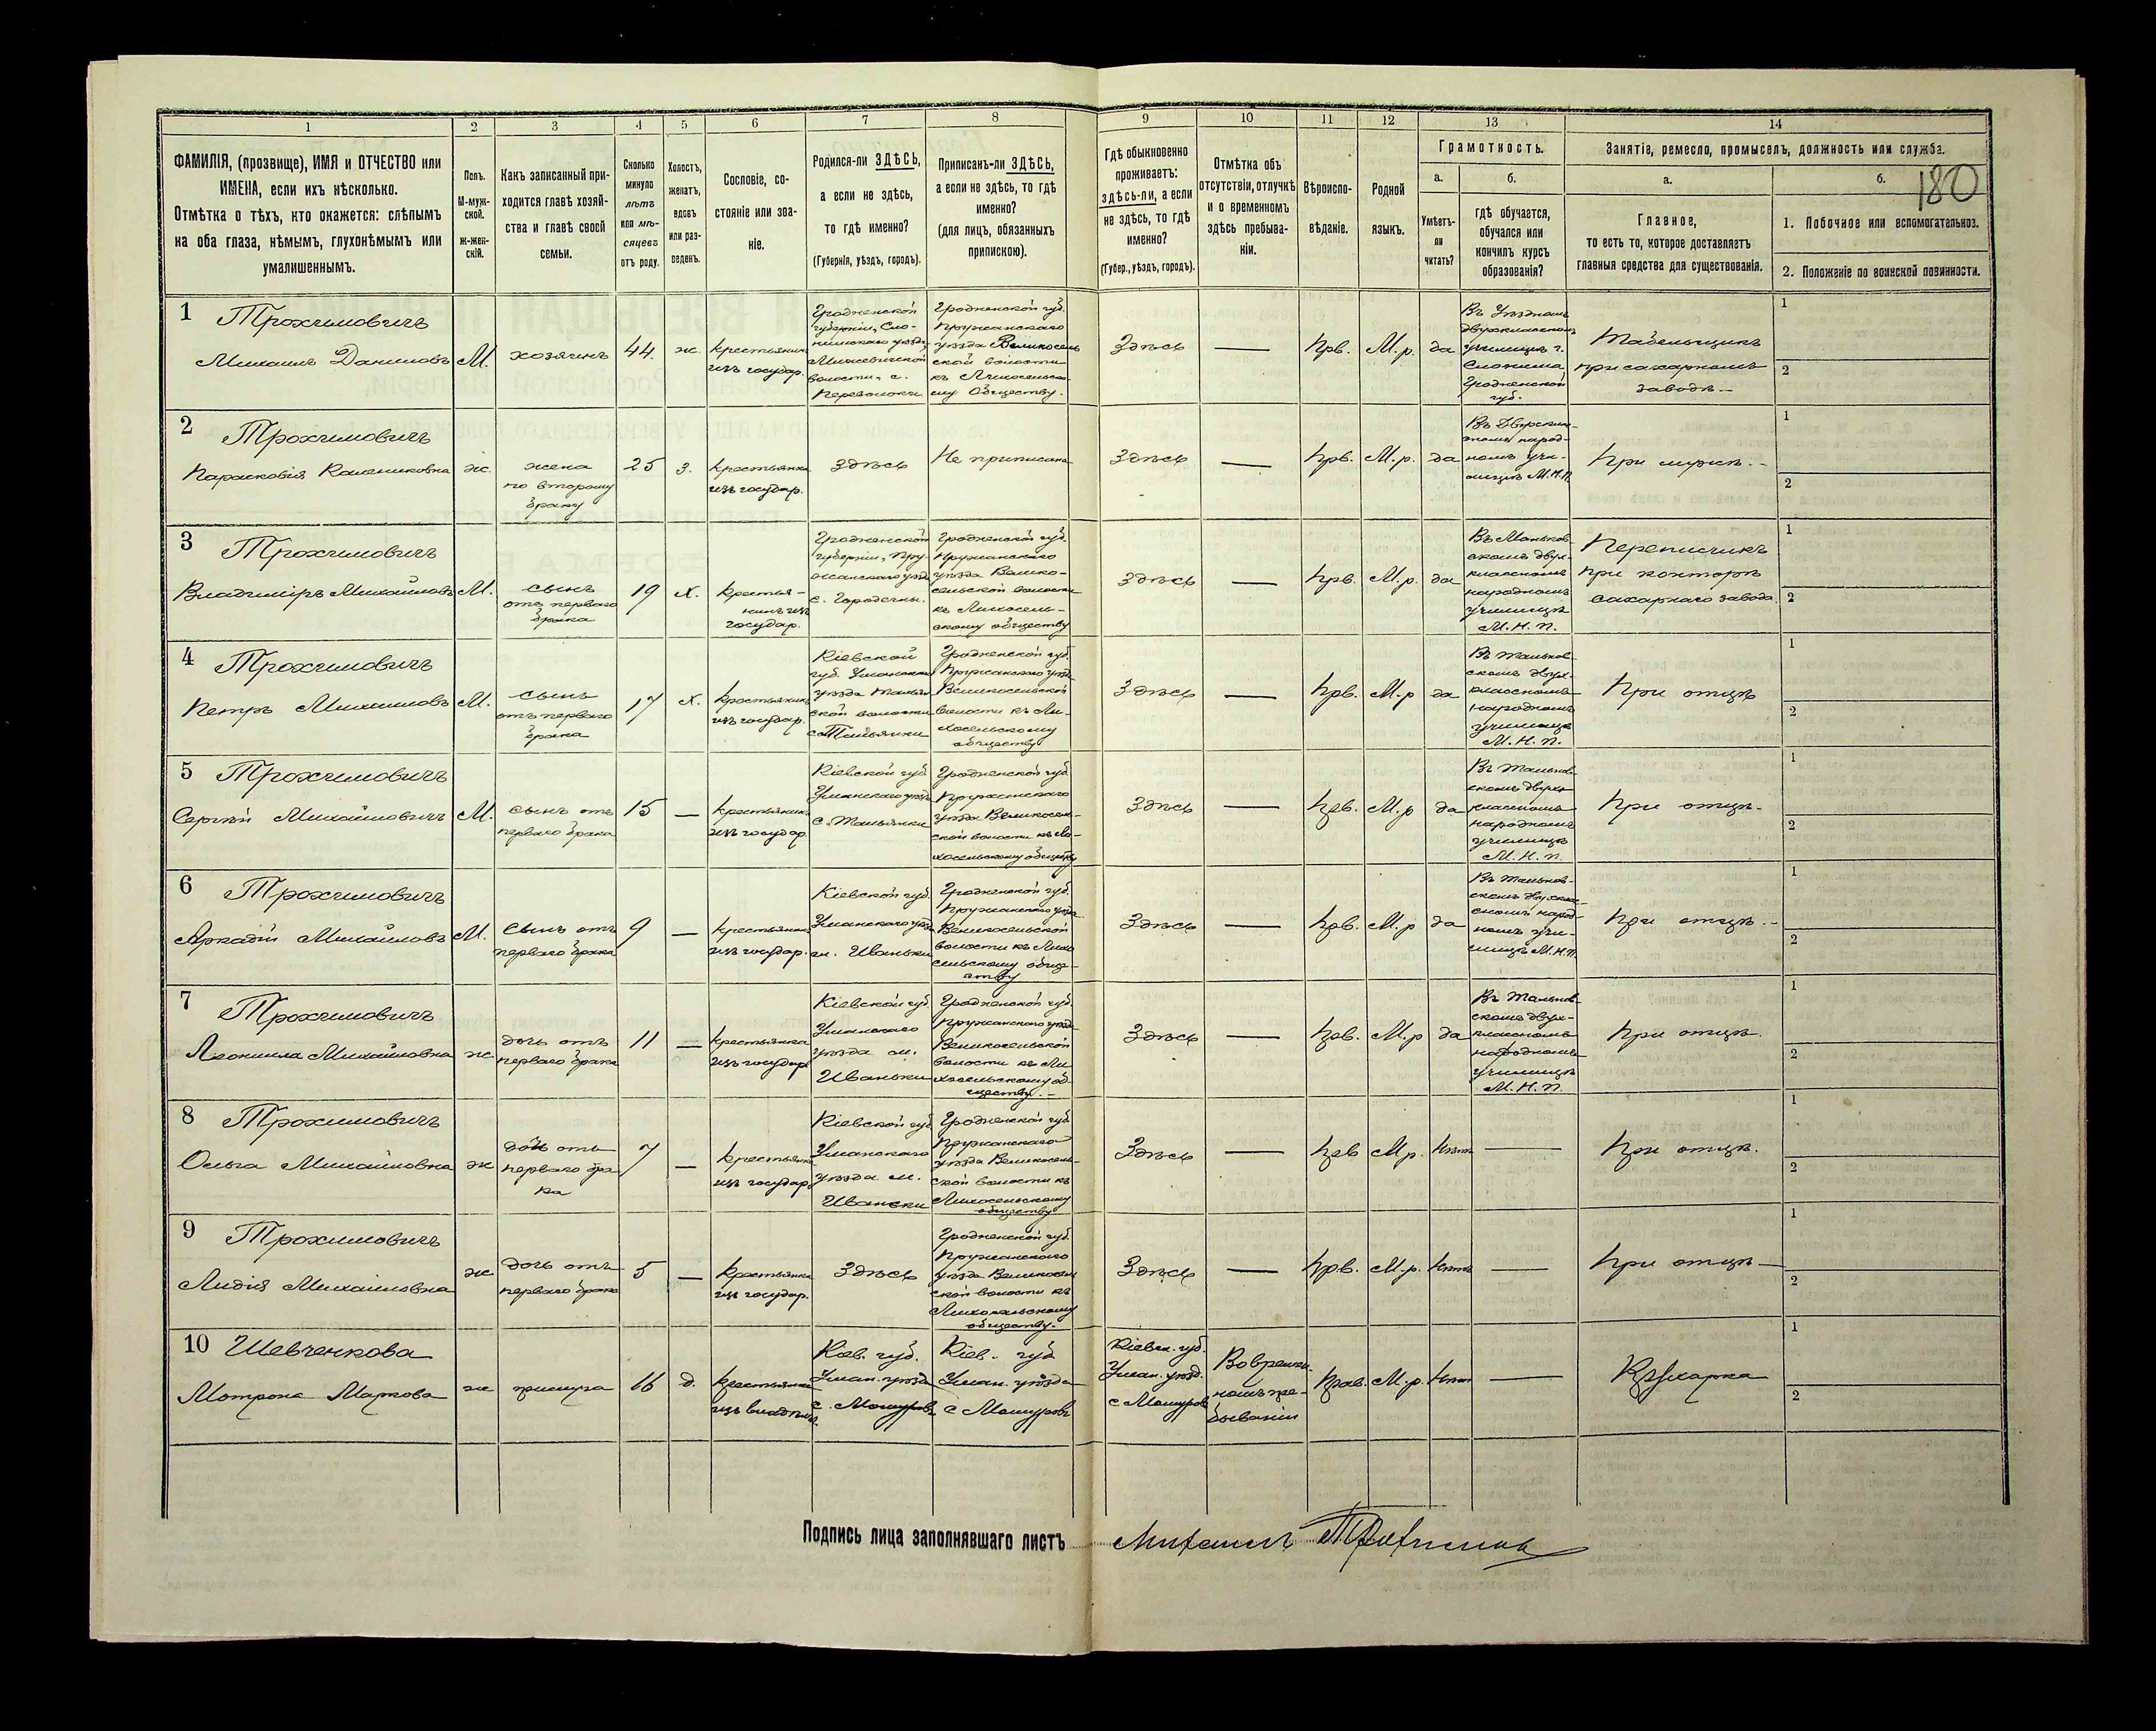 180
1 2 3 4 5 6 7 8 9 10 11 12 13 14
ФАМИЛІЯ, (прозвище), ИМЯ и ОТЧЕСТВО или
ИМЕНА, если ихъ нѣсколько.
Отмѣтка о тѣхъ, кто окажется: слѣпымъ
на оба глаза, нѣмымъ, глухонѣмымъ или
умалишеннымъ.
Полъ.
М-муж-
ской.
Ж-жен-
скій.
Какъ записанный при-
ходится главѣ хозяй-
ства и главѣ своей
семьи.
Сколько
минуло
лѣтъ
или мѣ-
сяцевъ
отъ роду.
Холостъ,
женатъ,
вдовъ
или раз-
веденъ.
Сословіе, со-
стояніе или зва-
ніе.
Родился-ли ЗДѢСЬ,
а если не здѣсь,
то гдѣ именно?
(Губернія, уѣздъ, городъ).
Приписанъ-ли ЗДѢСЬ,
а если не здѣсь, то гдѣ
именно?
(для лицъ, обязанныхъ
припискою).
Гдѣ обыкновенно
проживаетъ:
здѣсь-ли, а если
не здѣсь, то гдѣ
именно?
(Губер., уѣздъ, городъ).
Отмѣтка объ
отсутствіи, отлучкѣ
и о временномъ
здѣсь пребыва-
ніи.
Вѣроиспо-
вѣданіе.
Родной
языкъ.
Грамотность.
а.
Умѣетъ-
ли
читать?
б.
гдѣ обучается,
обучался или
кончилъ курсъ
образованія?
Занятіе, ремесло, промыселъ, должность или служба.
а.
Главное,
то есть то, которое доставляетъ
главныя средства для существованія.
б.
1. Побочное или вспомогательное.
2. Положеніе по воинской повинности.
1 Трохимовичъ
Михаилъ Даниловъ
М.
хозяинъ
44.
ж.
крестьянинъ
изъ государ.
Гродненской
губерніи, Сло-
нимскаго уѣзда
волости, с.
Гродненской губ.
Пружанскаго
уѣзда Великосель
ской волости
къ Лихосельско-
му Обществу.
Здѣсь
—
Прв.
М.р.
да
Въ Уѣздномъ
двухклассномъ
училищѣ г.
Слонима
Гродненской
губ.
Табельщикъ
при сахарномъ
заводѣ.
1
2
2 Трохимовичъ
Парасковія Калениковна
ж.
жена
по второму
браку
25
з.
крестьянка
изъ государ.
Здѣсь
Не приписана
Здѣсь
—
Прв.
М.р.
да
народ-
номъ учи-
лищѣ М.Н.П.
При мужѣ.
1
2
3 Трохимовичъ
Владиміръ Михайловъ
М.
сынъ
отъ перваго
брака
19
х.
крестья-
нинъ изъ
государ.
Гродненской
губерніи, Пру-
жанскаго уѣзда
с. Городечны.
Гродненской губ.
Пружанскаго
уѣзда Велико-
сельской волости
къ Лихосель-
скому обществу
Здѣсь
—
Прв.
М.р.
да
Въ Маньков-
скомъ двух-
классномъ
народномъ
училищѣ
М.Н.П.
Переписчикъ
при конторѣ
сахарнаго завода
1
2
4 Трохимовичъ
Петръ Михаиловъ
М.
сынъ
отъ перваго
брака
17
х.
крестьянинъ
изъ государ.
Кіевской
губ. Уманскаго
уѣзда Тальян
ской волости
с. Тальянки
Гродненской губ.
Пружанскаго уѣзд.
Великосельской
волости къ Ли-
хосельскому
обществу
Здѣсь
—
Прв.
М.р
да
Въ Тальнов-
скомъ двух-
классномъ
народномъ
училищѣ
М.Н.П.
При отцѣ
1
2
5 Трохимовичъ
Сергѣй Михайловичъ
М.
сынъ отъ
перваго брака
15
—
крестьянинъ
изъ государ.
Кіевской губ.
Уманскаго уѣзда
с. Тальянки
Гродненской губ.
Пружанскаго
уѣзда Великосель-
ской волости къ Ли-
хосельскому обществу
Здѣсь
—
Прв.
М.р
да
Въ Тальнов-
скомъ двухъ
классномъ
народномъ
училищѣ
М.Н.П.
При отцѣ.
1
2
6 Трохимовичъ
Аркадій Михайловъ
М.
сынъ отъ
перваго брака
9
—
крестьянинъ
изъ государ.
Кіевской губ.
Уманскаго уѣзда
м. Иваньки
Гродненской губ.
Пружанскаго уѣзд.
Великосельской
волости къ Лихо
сельскому обще-
ству
Здѣсь
—
Прв.
М.р
да
Въ Тальнов-
скомъ двухклас-
сномъ народ-
номъ учи-
лищѣ М.Н.П.
При отцѣ.
1
2
7 Трохимовичъ
Леонилла Михайловна
ж
дочь отъ
перваго брака
11
—
крестьянка
изъ государ.
Кіевской губ.
Уманскаго
уѣзда м.
Иваньки
Гродненской губ.
Пружанскаго уѣзд.
Великосельской
волости къ Ли
хосельскому об-
ществу.
Здѣсь
—
Прв.
М.р
да
Въ Тальнов-
скомъ двух-
классномъ
народномъ
училищѣ
М.Н.П.
При отцѣ.
1
2
8 Трохимовичъ
Ольга Михайловна
ж
дочь отъ
перваго бра-
ка
7
—
крестьянка
изъ государ.
Кіевской губ
Уманскаго
уѣзда м.
Иваньки
Гродненской губ.
Пружанскаго
уѣзда Великосель-
ской волости къ
Лихосельскому
обществу
Здѣсь
—
Прв
М.р.
Нѣтъ
—
При отцѣ.
1
2
9 Трохимовичъ
Лидія Михайловна
ж
дочь отъ
перваго брака
5
—
крестьянка
изъ государ.
Здѣсь
Гродненской губ.
Пружанскаго
уѣзда Великосель
ской волости къ
Лихосельскому
обществу.
Здѣсь
—
Прв.
М.р.
Нѣтъ
—
При отцѣ
1
2
10 Шевченкова
Мотрона Маркова
ж
прислуга
16
д.
крестьянка
изъ владѣльч.
Кіев. губ.
Уман. уѣзда
с. Мошуровъ
Кіев. губ
Уман. уѣзда
с Мошуровъ
Кіевск. губ.
Уман. уѣзд.
с Мошуровъ
Во времен-
номъ пре-
бываніи
Прав.
М.р.
Нѣтъ
—
Кухарка
1
2
Подпись лица заполнявшаго листъ Михаилъ Трохимовичъ